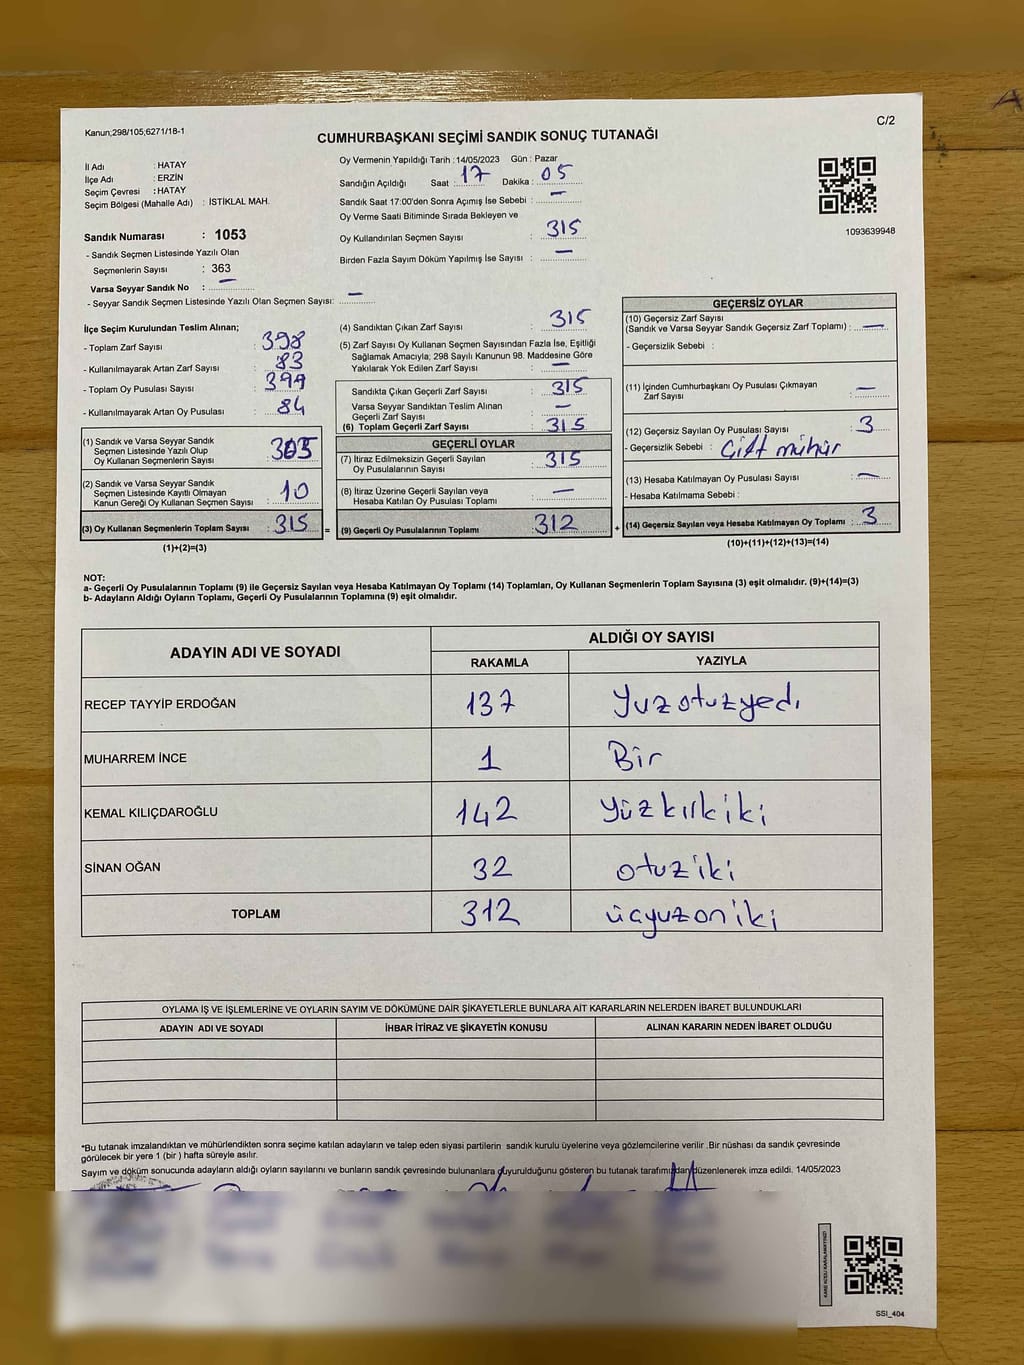 Kanun;298/105;6271/18-1
C/2
CUMHURBAŞKANI SEÇİMİ SANDIK SONUÇ TUTANAĞI
İl Adı : HATAY
İlçe Adı : ERZİN
Seçim Çevresi : HATAY
Seçim Bölgesi (Mahalle Adı) : İSTİKLAL MAH.
Sandık Numarası : 1053
- Sandık Seçmen Listesinde Yazılı Olan
Seçmenlerin Sayısı : 363
Varsa Seyyar Sandık No : —
- Seyyar Sandık Seçmen Listesinde Yazılı Olan Seçmen Sayısı: —
Oy Vermenin Yapıldığı Tarih : 14/05/2023 Gün : Pazar
Sandığın Açıldığı Saat : 17 Dakika : 05
Sandık Saat 17:00'den Sonra Açımış İse Sebebi : —
Oy Verme Saati Bitiminde Sırada Bekleyen ve
Oy Kullandırılan Seçmen Sayısı : 315
Birden Fazla Sayım Döküm Yapılmış İse Sayısı : —
1093639948
İlçe Seçim Kurulundan Teslim Alınan;
- Toplam Zarf Sayısı : 398
- Kullanılmayarak Artan Zarf Sayısı : 83
- Toplam Oy Pusulası Sayısı : 399
- Kullanılmayarak Artan Oy Pusulası : 84
(1) Sandık ve Varsa Seyyar Sandık
Seçmen Listesinde Yazılı Olup
Oy Kullanan Seçmenlerin Sayısı : 305
(2) Sandık ve Varsa Seyyar Sandık
Seçmen Listesinde Kayıtlı Olmayan
Kanun Gereği Oy Kullanan Seçmen Sayısı : 10
(3) Oy Kullanan Seçmenlerin Toplam Sayısı : 315 =
(1)+(2)=(3)
(4) Sandıktan Çıkan Zarf Sayısı : 315
(5) Zarf Sayısı Oy Kullanan Seçmen Sayısından Fazla İse, Eşitliği
Sağlamak Amacıyla; 298 Sayılı Kanunun 98. Maddesine Göre
Yakılarak Yok Edilen Zarf Sayısı : —
Sandıkta Çıkan Geçerli Zarf Sayısı : 315
Varsa Seyyar Sandıktan Teslim Alınan
Geçerli Zarf Sayısı : —
(6) Toplam Geçerli Zarf Sayısı : 315
GEÇERLİ OYLAR
(7) İtiraz Edilmeksizin Geçerli Sayılan
Oy Pusulalarının Sayısı : 315
(8) İtiraz Üzerine Geçerli Sayılan veya
Hesaba Katılan Oy Pusulası Toplamı : —
(9) Geçerli Oy Pusulalarının Toplamı : 312 +
GEÇERSİZ OYLAR
(10) Geçersiz Zarf Sayısı
(Sandık ve Varsa Seyyar Sandık Geçersiz Zarf Toplamı) : —
- Geçersizlik Sebebi :
(11) İçinden Cumhurbaşkanı Oy Pusulası Çıkmayan
Zarf Sayısı : —
(12) Geçersiz Sayılan Oy Pusulası Sayısı : 3
- Geçersizlik Sebebi : Çift mühür
(13) Hesaba Katılmayan Oy Pusulası Sayısı : —
- Hesaba Katılmama Sebebi :
(14) Geçersiz Sayılan veya Hesaba Katılmayan Oy Toplamı : 3
(10)+(11)+(12)+(13)=(14)
NOT:
a- Geçerli Oy Pusulalarının Toplamı (9) ile Geçersiz Sayılan veya Hesaba Katılmayan Oy Toplamı (14) Toplamları, Oy Kullanan Seçmenlerin Toplam Sayısına (3) eşit olmalıdır. (9)+(14)=(3)
b- Adayların Aldığı Oyların Toplamı, Geçerli Oy Pusulalarının Toplamına (9) eşit olmalıdır.
ADAYIN ADI VE SOYADI
ALDIĞI OY SAYISI
RAKAMLA YAZIYLA
RECEP TAYYİP ERDOĞAN 137 Yuzotuzyedi
MUHARREM İNCE 1 Bir
KEMAL KILIÇDAROĞLU 142 yüzkırkiki
SİNAN OĞAN 32 otuziki
TOPLAM 312 üçyuzoniki
OYLAMA İŞ VE İŞLEMLERİNE VE OYLARIN SAYIM VE DÖKÜMÜNE DAİR ŞİKAYETLERLE BUNLARA AİT KARARLARIN NELERDEN İBARET BULUNDUKLARI
ADAYIN ADI VE SOYADI İHBAR İTİRAZ VE ŞİKAYETİN KONUSU ALINAN KARARIN NEDEN İBARET OLDUĞU
*Bu tutanak imzalandıktan ve mühürlendikten sonra seçime katılan adayların ve talep eden siyasi partilerin sandık kurulu üyelerine veya gözlemcilerine verilir .Bir nüshası da sandık çevresinde
görülecek bir yere 1 (bir ) hafta süreyle asılır.
Sayım ve döküm sonucunda adayların aldığı oyların sayılarını ve bunların sandık çevresinde bulunanlara duyurulduğunu gösteren bu tutanak tarafımızdan düzenlenerek imza edildi. 14/05/2023
SSI_404